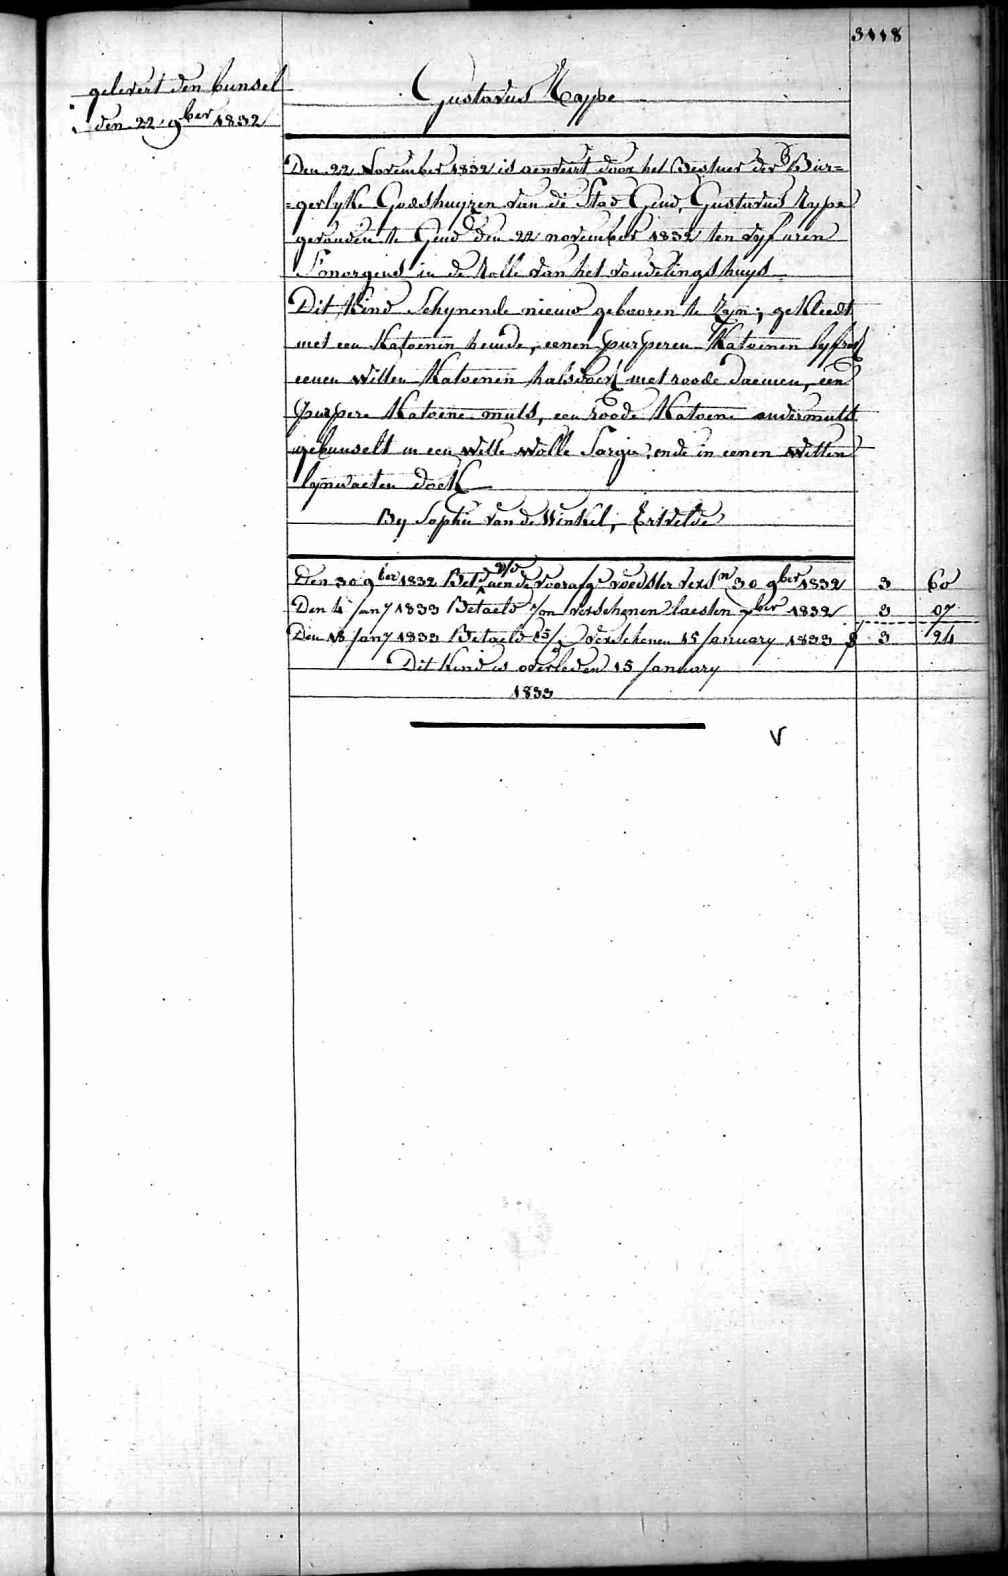 3118
gelevert den bunsel
den 22 9ber 1832
Gustavus Kappe
Den 22 November 1832 is aenveirt door het Bestuer der Bur=
=gerlyke Godshuyzen van de Stad Gend, Gustavus
gevonden te Gend den 22 november 1832 ten vyf uren
S'morgens in de Rolle van het vondelingshuys
Dit Kind Schynende nieuw gebooren te Zyn; gekleedt
met een Katoenen hemde, eenen purperen Katoenen lyfrok
eenen witten Katoenen halsdoek met roode Daemen, een
purpere Katoene muts, een roode Katoene ondermuts
gebunselt in een witte wolle Sargie, ende in eenen witten
lynwaeten doek
By Sophie van de Winkel, Ertvelde
Den 30 9ber 1832 Betd aen de voorafge voedster versn 30 9ber 1832 3 60
Den 4 Jany 1833 Betaeld 1/m verschenen laesten xber 1832 3 07
Den 18 Jany 1833 Betaeld 15/d verschenen 15 January 1833 3 24
Dit Kind is overleden 15 January
1833
V